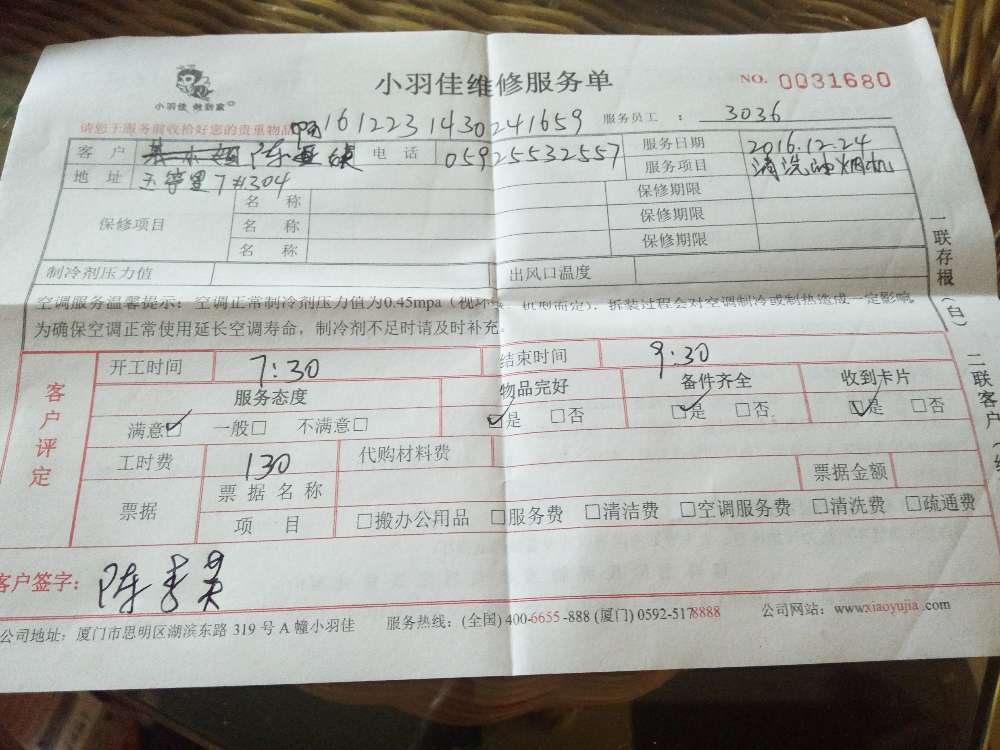 小羽佳维修服务单
NO. 0031680
小羽佳 做到家
请您于服务前收拾好您的贵重物品
161223 1430241659
服务员工 : 3036
客户 陈 电话 05925532557 服务日期 2016.12.24
地址 玉宇里7#304 服务项目 清洗油烟机
保修项目 名称 保修期限
名称 保修期限
名称 保修期限
制冷剂压力值 出风口温度
空调服务温馨提示: 空调正常制冷剂压力值为0.45mpa (视环 机型而定), 拆装过程会对空调制冷或制热造成一定影响
为确保空调正常使用延长空调寿命, 制冷剂不足时请及时补充。
一联存根 (白)
二联客户
客户评定
开工时间 7:30 结束时间 9:30
服务态度 物品完好 备件齐全 收到卡片
满意☑ 一般□ 不满意□ ☑是 □否 ☑是 □否 ☑是 □否
工时费 130 代购材料费
票据 票据名称 票据金额
项目 □搬办公用品 □服务费 □清洁费 □空调服务费 □清洗费 □疏通费
客户签字: 陈秀英
公司地址: 厦门市思明区湖滨东路 319 号 A 幢小羽佳 服务热线: (全国) 400-6655-888 (厦门) 0592-5178888 公司网站: www.xiaoyujia.com